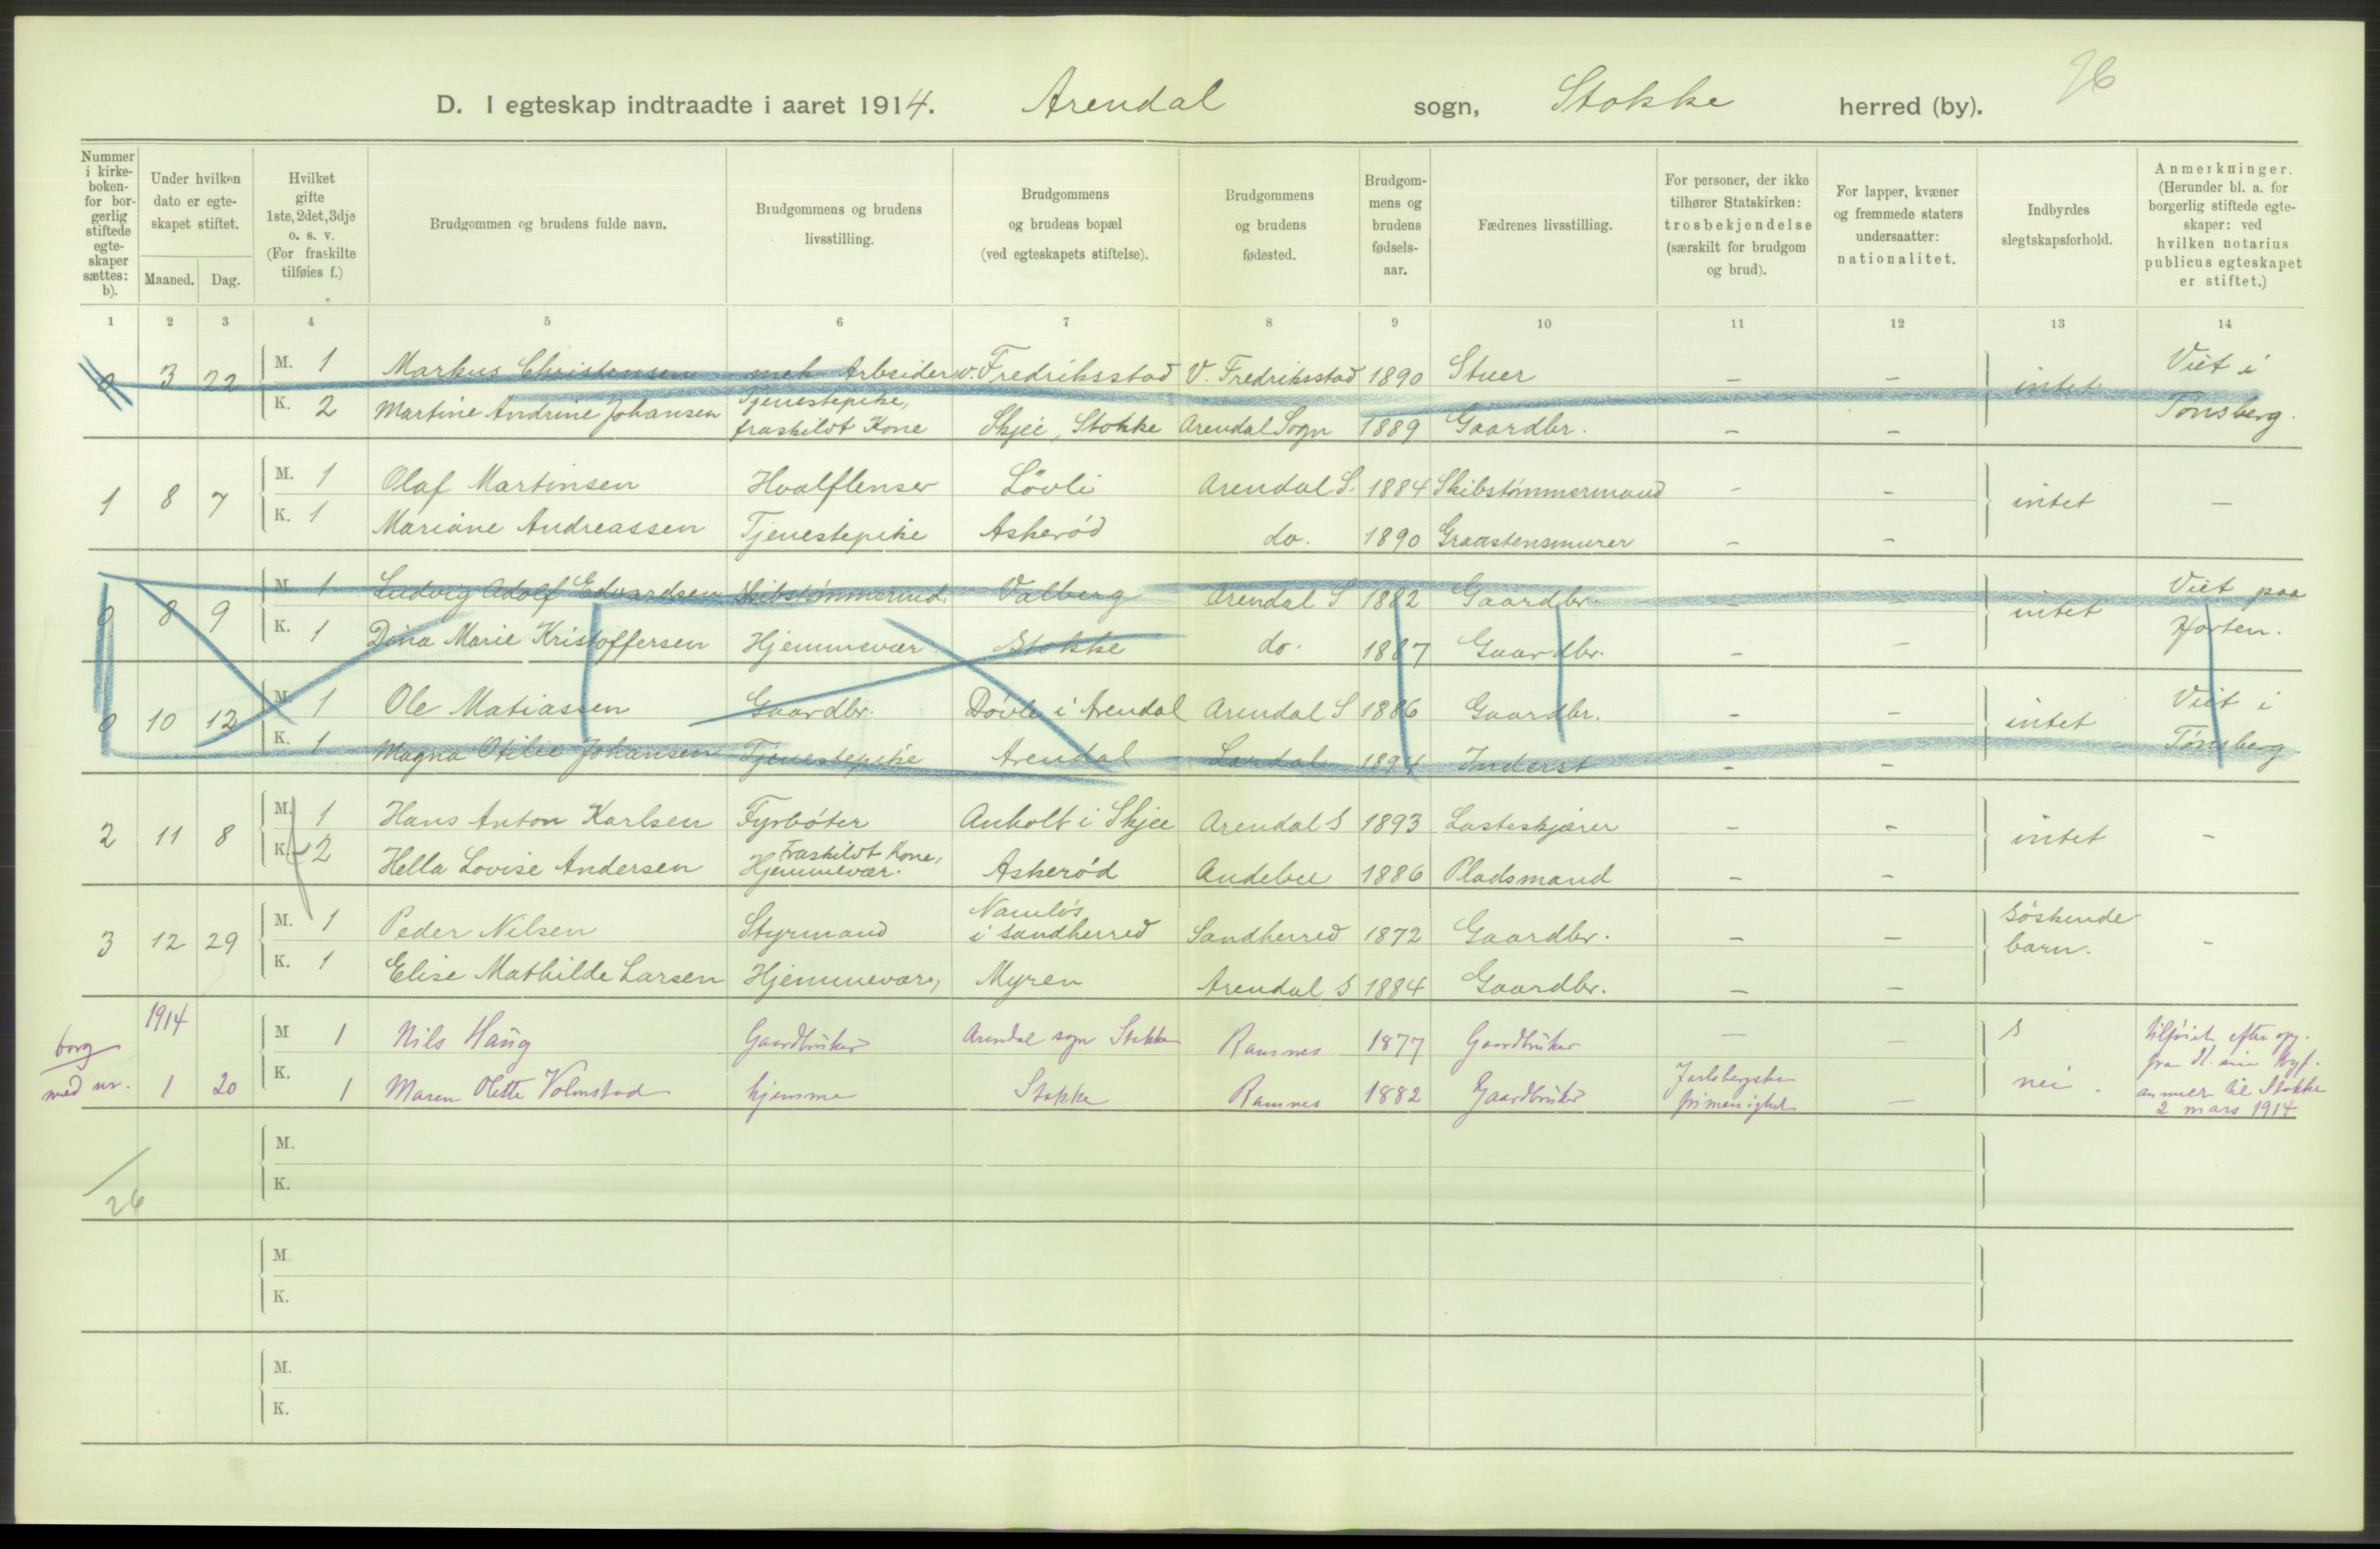 D. I egteskap indtraadte i aaret 1914. Arendal sogn, Stokke herred (by). 26
Nummer i kirkeboken- for borgerlig stiftede egteskaper sættes: b).
Under hvilken dato er egteskapet stiftet.
Maaned. Dag.
Hvilket gifte 1ste, 2det, 3dje o. s. v. (For fraskilte tilføies f.)
Brudgommen og brudens fulde navn.
Brudgommens og brudens livsstilling.
Brudgommens og brudens bopæl (ved egteskapets stiftelse).
Brudgommens og brudens fødested.
Brudgommens og brudens fødselsaar.
Fædrenes livsstilling.
For personer, der ikke tilhører Statskirken: trosbekjendelse (særskilt for brudgom og brud).
For lapper, kvæner og fremmede staters undersaatter: nationalitet.
Indbyrdes slegtskapsforhold.
Anmerkninger. (Herunder bl. a. for borgerlig stiftede egteskaper: ved hvilken notarius publicus egteskapet er stiftet.)
1 2 3 4 5 6 7 8 9 10 11 12 13 14
0 3 22 M. 1 Markus Christensen mek Arbeider v. Fredriksstad V. Fredriksstad 1890 Stuer – – intet Viet i
K. 2 Martine Andrine Johansen Tjenestepike, fraskildt Kone Skjee, Stokke Arendal Sogn 1889 Gaardbr. – – Tønsberg.
1 8 7 M. 1 Olaf Martinsen Hvalflenser Løvli Arendal S. 1884 Skibstømmermand - - intet –
K. 1 Mariane Andreassen Tjenestepike Askerød do. 1890 Graastensmurer – –
0 8 9 M. 1 Ludvig Adolf Edvardsen Skibstømmermd. Valberg Arendal S 1882 Gaardbr. – – intet Viet paa
K. 1 Dina Marie Kristoffersen Hjemmevær Stokke do. 1887 Gaardbr. – – Horten.
0 10 12 M. 1 Ole Matiassen Gaardbr. Døvle i Arendal Arendal S 1886 Gaardbr. – – intet Viet i
K. 1 Magna Otilie Johansen Tjenestepike Arendal Lardal 1894 Inderst – – Tønsberg.
2 11 8 M. 1 Hans Anton Karlsen Fyrbøter Anholt i Skjee Arendal S 1893 Lasteskjører – – intet -
K. 2 Hella Lovise Andersen Fraskildt Kone, Hjemmevær. Askerød Andebu 1886 Pladsmand – –
3 12 29 M. 1 Peder Nilsen Styrmand Namløs i Sandherred Sandherred 1872 Gaardbr. – – Søskendebarn. -
K. 1 Elise Mathilde Larsen Hjemmevær, Myren Arendal S 1884 Gaardbr. – –
1914 M 1 Nils Haug Gaardbruker Arendal sogn Stokke Ramnes 1877 Gaardbruker – – s tilføiet efter opg.
borg med nr. 1 20 K. 1 Maren Olette Volmstad hjemme Stokke Ramnes 1882 Gaardbruker Jarlsbergske frimenighet – nei. anmeldt til Stokke
2 mars 1914
M.
K.
26
M.
K.
M.
K.